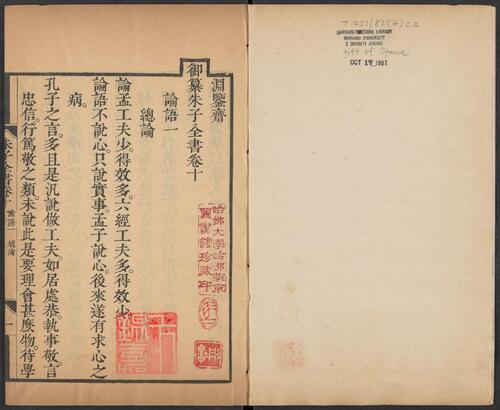 T1237/82(4) C.2
HARVARD-YENCHING LIBRARY
HARVARD UNIVERSITY
2 DIVINITY AVENUE
gift of Spence
OCT 17 1987
淵鑒齋
御纂朱子全書卷十
論語一
總論
論孟工夫少。得效多。六經工夫多。得效少。
論語不說心。只說實事。孟子說心。後來遂有求心之
病。
孔子之言。多且是汎說做工夫。如居處恭。執事敬。言
忠信。行篤敬之類。未說此是要理會甚麼物。待學
朱子全書卷十
論語一 總論
一
哈佛大學哈佛燕京
圖書館珍藏印